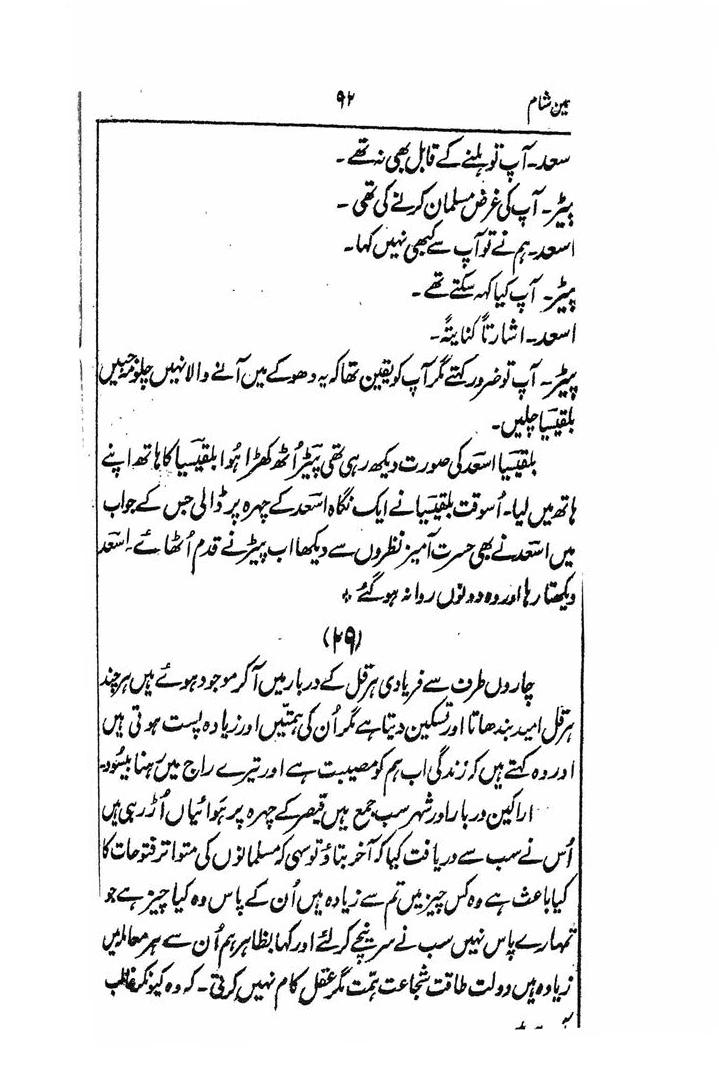 ۹۲ یمین شام
سعد۔ آپ تو ہلنے کے قابل بھی نہ تھے۔
پیٹر۔ آپ کی غرض مسلمان کرنے کی تھی۔
اسعد۔ ہم نے تو آپ سے کبھی نہیں کہا۔
پیٹر۔ آپ کیا کہہ سکتے تھے۔
اسعد۔ اشارتاً کنایتہً۔
پیٹر۔ آپ تو ضرور کہتے مگر آپ کو یقین تھا کہ یہ دھوکے میں آنے والا نہیں چلو
بلقیسیا چلیں۔
بلقیسیا اسعد کی صورت دیکھ رہی تھی پیٹر اُٹھ کھڑا ہُوا بلقیسیا کا ہاتھ اپنے
ہاتھ میں لیا۔ اُسوقت بلقیسیا نے ایک نگاہ اسعد کے چہرہ پر ڈالی جس کے جواب
میں اسعد نے بھی حسرت آمیز نظروں سے دیکھا اب پیٹر نے قدم اُٹھائے۔ اسعد
دیکھتا رہا اور وہ دونوں روانہ ہو گئے *
(۲۹)
چاروں طرف سے فریادی ہرقل کے دربار میں آ کر موجود ہوئے ہیں ہر چند
ہرقل امید بندھاتا اور تسکین دیتا ہے مگر اُن کی ہمتیں اور زیادہ پست ہوتی ہیں
اور وہ کہتے ہیں کہ زندگی اب ہم کو مصیبت ہے اور تیرے راج میں رہنا بیسُود۔
اراکین دربار اور شہر سب جمع ہیں قیصر کے چہرہ پر ہوائیاں اُڑ رہی ہیں
اُس نے سب سے دریافت کیا کہ آخر بتاؤ تو سہی کہ مسلمانوں کی متواتر فتوحات کا
کیا باعث ہے وہ کس چیز میں تم سے زیادہ ہیں اُن کے پاس وہ کیا چیز ہے جو
تمہارے پاس نہیں سب نے سر نیچے کر لئے اور کہا بظاہر ہم اُن سے ہر معاملہ میں
زیادہ ہیں دولت طاقت شجاعت ہمّت مگر عقل کام نہیں کرتی۔ کہ وہ کیونکر غالب